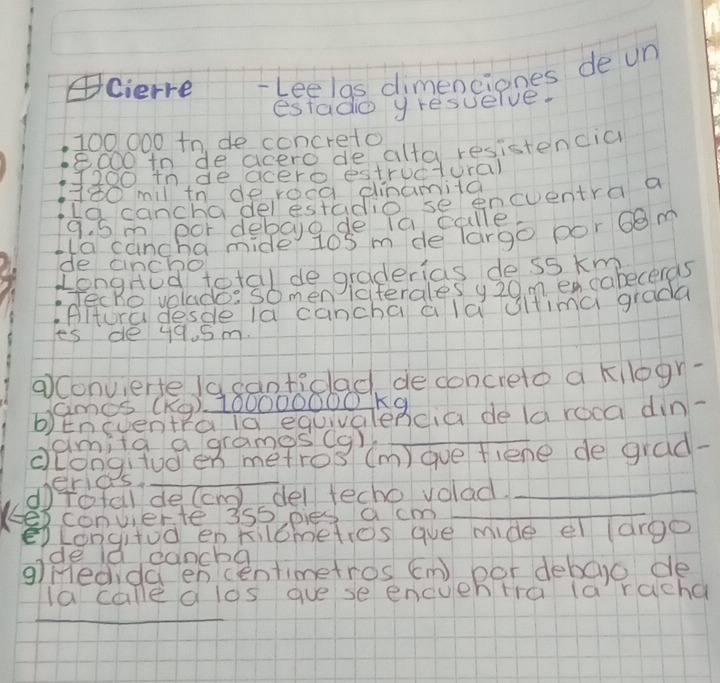 Cierre - Lee las dimenciones de un
estadio y resuelve.
• 100 000 tn de concreto
• 8,000 tn de acero de alta resistencia
• 1200 tn de acero estructural
• 180 mil tn de roca dinamita
• La cancha del estadio se encuentra a
9.5 m por debajo de la calle.
• La cancha mide 105 m de largo por 68 m
de ancho
• Longitud total de graderías de 55 Km
• Techo volado: 50 m en laterales y 20 m en cabeceras
• Altura desde la cancha a la última grada
es de 49.5 m.
a) Convierte la cantidad de concreto a Kilogr-
amos (kg) 100000000 kg
b) Encuentra la equivalencia de la roca din-
amita a gramos (g).
c) Longitud en metros (m) que tiene de grad-
erías.
d) Total de (cm) del techo volad.
e) convierte 355 pies a cm
e) Longitud en Kilómetros que mide el largo
de la cancha
g) Medida en centimetros (m) por debajo de
la calle a los que se encuentra la racha